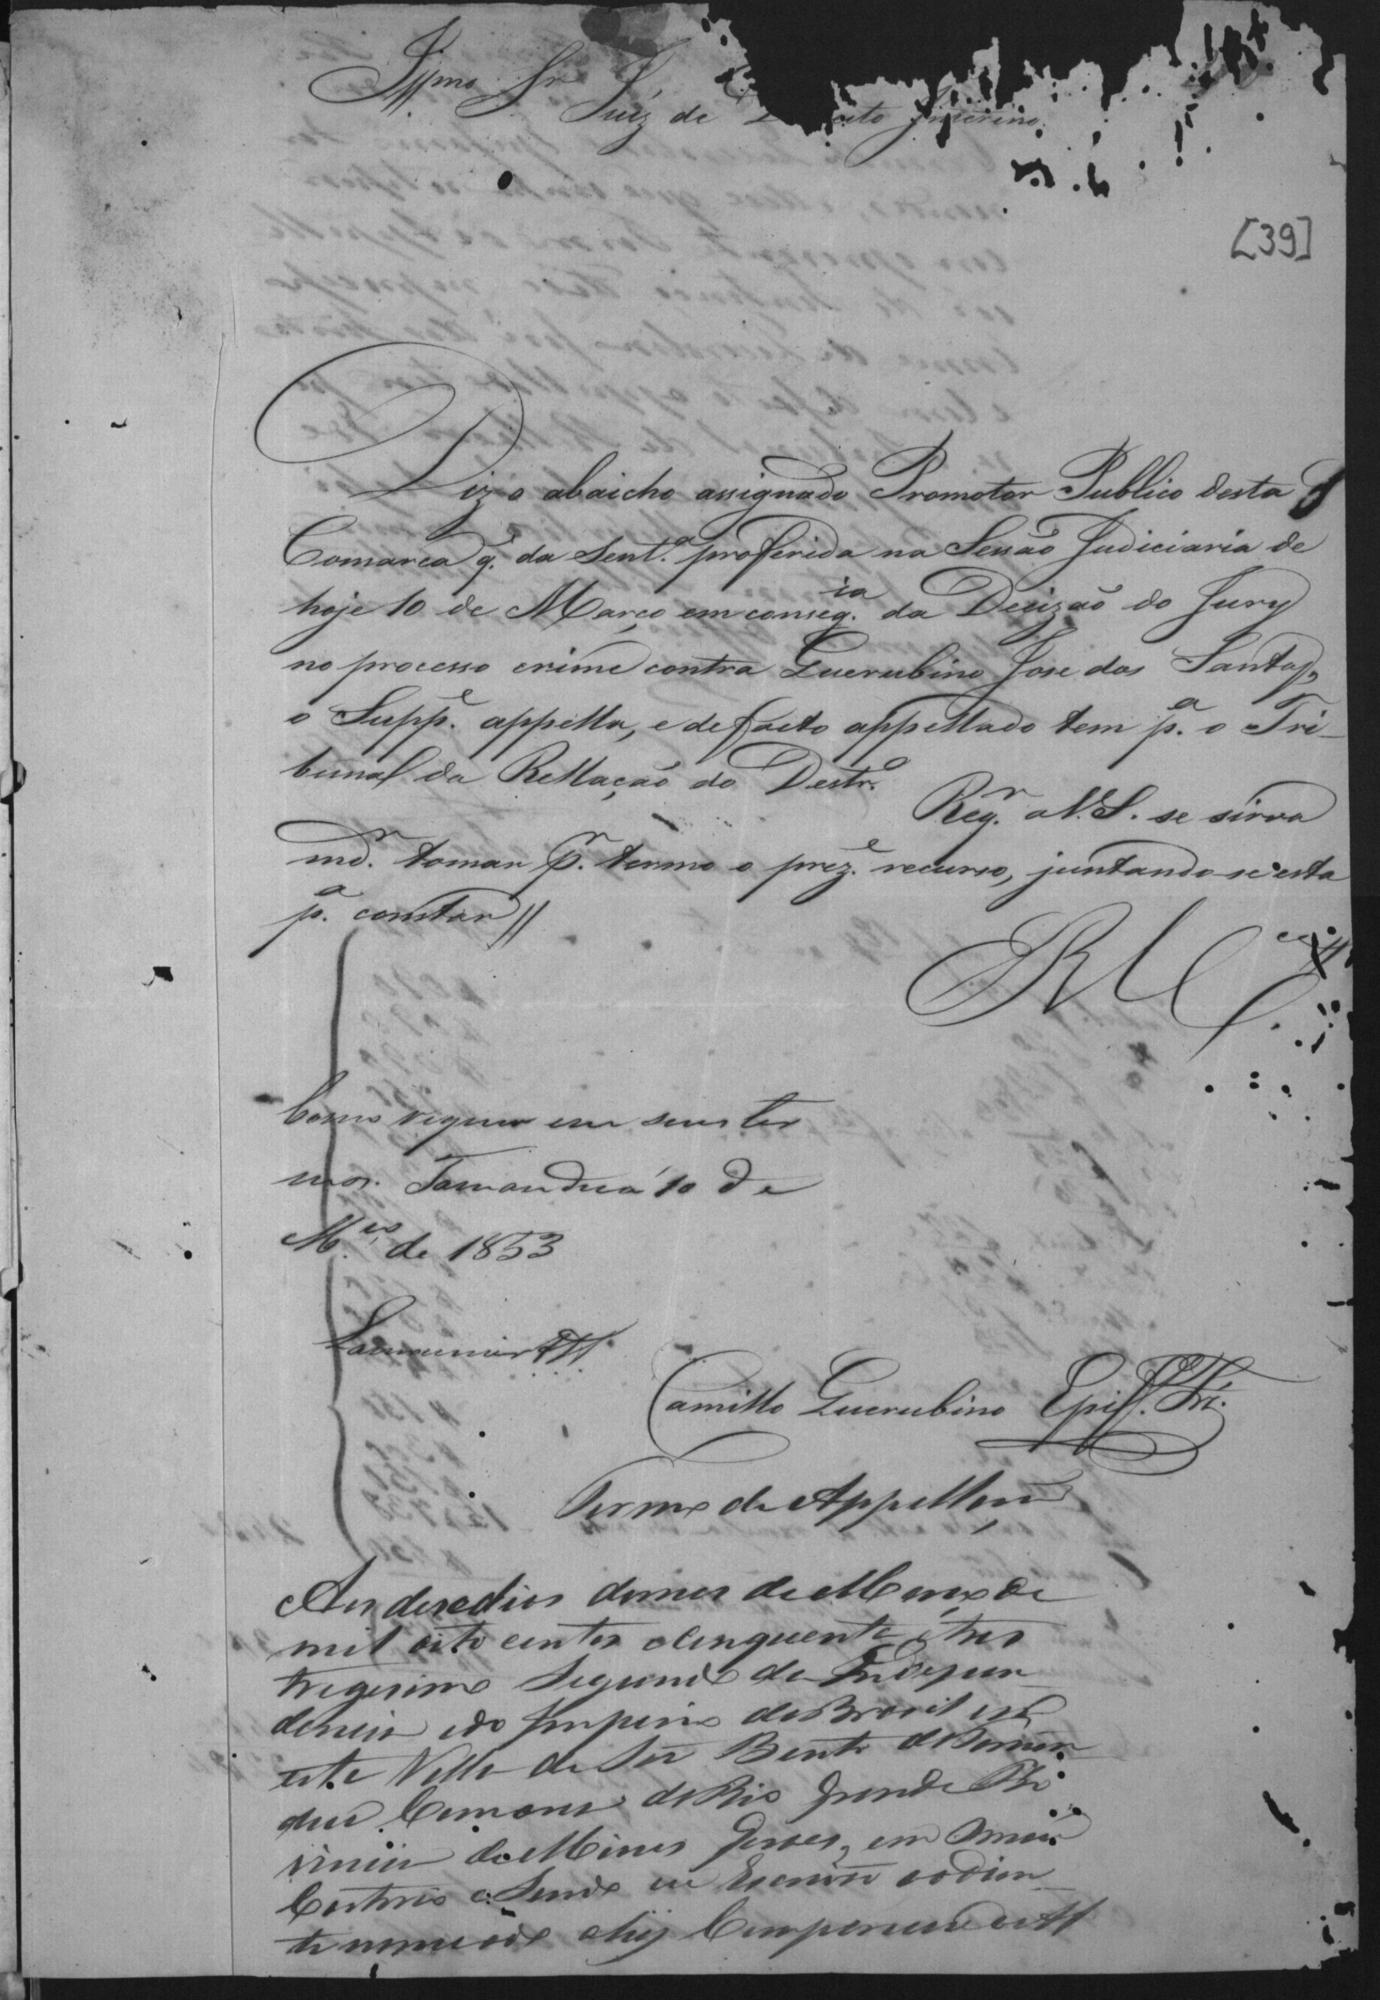 Illmo Sr. Juiz de Interino
[39]
Diz o abaicho assignado Promotor Publico desta
Comarca q.' da Sent.ª proferida na Sessão Judiciaria de
hoje 10 de Março em conseq.ia da Decizaõ do Jury
no processo crime contra Querubino Jose dos Santos,
o Supp.e appella, e de facto appellado tem p.a o Tri-
bunal da Rellaçaõ do Destr.o
Req.r a V.S. se sirva
md.r tomar p.r termo o prez.e recurso, juntando-se esta
p.a constar //
R M.ce
Como requer em seus ter
mos. Tamanduá 10 de
M.ço de 1853
Camillo Querubino
Termo de Appellaçaõ
Aos des dias do mes de Março de
mil oito centos e cinquenta e tres
trigesimo Segundo da Indepen
dencia e do Imperio do Brasil n
esta Villa de Saõ Bento do Taman
dua Comarca do Rio Grande Pro
vincia de Minas Geraes, em meu
Cartorio e Sendo eu Escrivaõ ao dian
te nomeado ahy Compareceu o